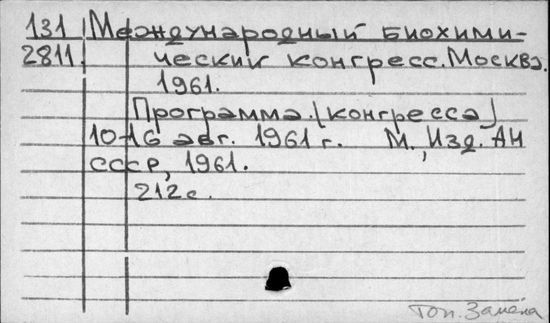 131 Международный биохими-
2811. ческий конгресс. Москва.
1961.
Программа. (конгресса)
10-16 авг. 1961 г. М., Изд. АН
СССР, 1961.
212 с.
Топ. Замена